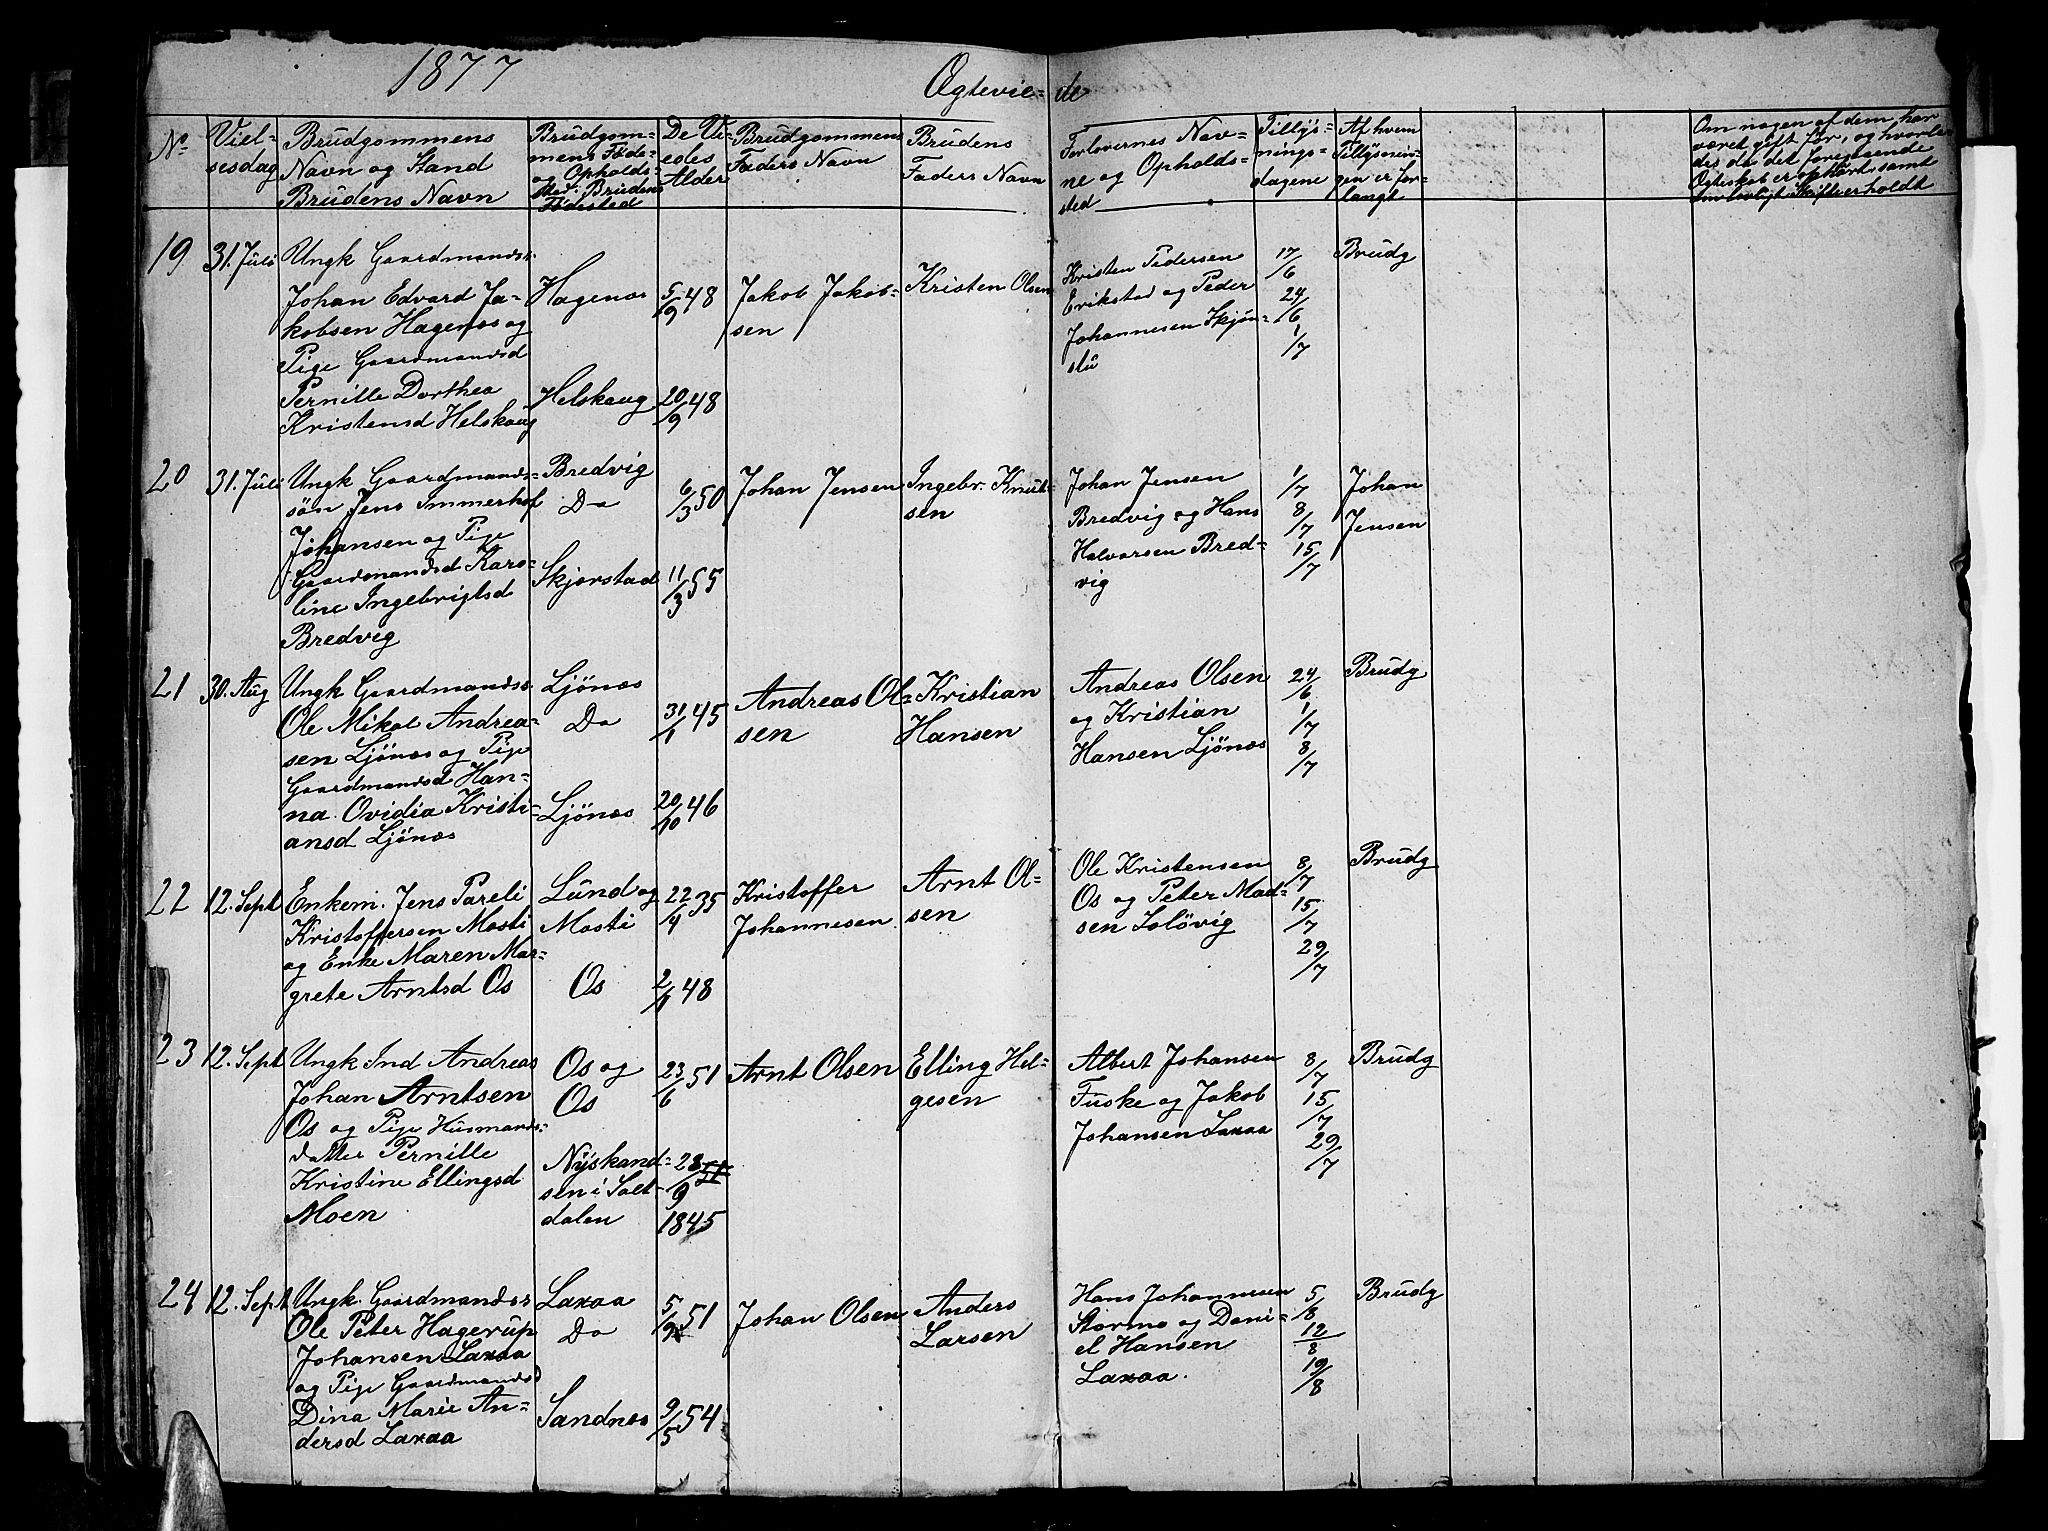 1877
Ogtevie-de
No
Viel-
sesdag
Brudgommens
Navn og Stand
Brudens Navn
Brudgom-
mens Føde-
og Opholds-
sted. Brudens
Fødested
De Vi-
edes
Alder
Brudgommens
Faders Navn
Brudens
Faders Navn
Forlovernes Nav-
ne og Opholds-
sted
Tillys-
nings-
dagene
Af hvem
Tillysnin-
gen er for-
langt
Om nogen af dem har
været gift før, og hvorle-
des da det foregaaende
Ogteskab er ophørt samt
om lovligt Skifte er holdt
19
31. Juli
Ungk Gaardmandss.
Johan Edvard Ja-
kobsen Hagenæs og
Pige Gaardmandsd
Pernille Dorthea
Kristensd Helskaug
Hagenæs
Helskaug
5/9 48
20/9 48
Jakob Jakob-
sen
Kristen Olsen
Kristen Pedersen
Erikstad og Peder
Johannesen Skjøn-
stu
17/6
24/6
1/7
Brudg
20
31. Juli
Ungk Gaardmands-
søn Jens Immerhof
Johansen og Pige
Gaardmandsd Karo-
line Ingebrigtsd
Bredvig
Bredvig
Do
Skjerstad
6/3 50
11/3 55
Johan Jensen
Ingebr. Knut-
sen
Johan Jensen
Bredvig og Hans
Halvorsen Bred-
vig
1/7
8/7
15/7
Johan
Jensen
21
30. Aug
Ungk Gaardmandss
Ole Mikal Andrea-
sen Ljönæs og Pige
Gaardmandsd Han-
na Ovidia Kristi-
ansd Ljönæs
Ljönæs
Do
Ljönæs
31/1 45
20/10 46
Andreas Ol-
sen
Kristian
Hansen
Andreas Olsen
og Kristian
Hansen Ljönæs
24/6
1/7
8/7
Brudg
22
12. Sept
Enkem. Jens Pareli
Kristoffersen Mosti
og Enke Maren Mar-
grete Arntsd Os
Lund og
Mosti
Os
22/4 35
2/1 48
Kristoffer
Johannesen
Arnt Ol-
sen
Ole Kristensen
Os og Peter Mad-
sen Solövig
8/7
15/7
29/7
Brudg
23
12. Sept
Ungk Ind Andreas
Johan Arntsen
Os og Pige Husmands-
datter Pernille
Kristine Ellingsd
Moen
Os og
Os
Nyskand-
sen i Salt-
dalen
23/6 51
28/9 51
1845
Arnt Olsen
Elling Hel-
gesen
Albert Johansen
Fuske og Jakob
Johansen Laxaa
8/7
15/7
29/7
Brudg
24
12. Sept
Ungk. Gaardmandss
Ole Peter Hagerup
Johansen Laxaa
og Pige Gaardmandsd
Dina Marie An-
dersd Laxaa
Laxaa
Do
Sandnæs
5/9 51
9/5 54
Johan Olsen
Anders
Larsen
Hans Johannesen
Stormo og Dani-
el Hansen
Laxaa.
5/8
12/8
19/8
Brudg